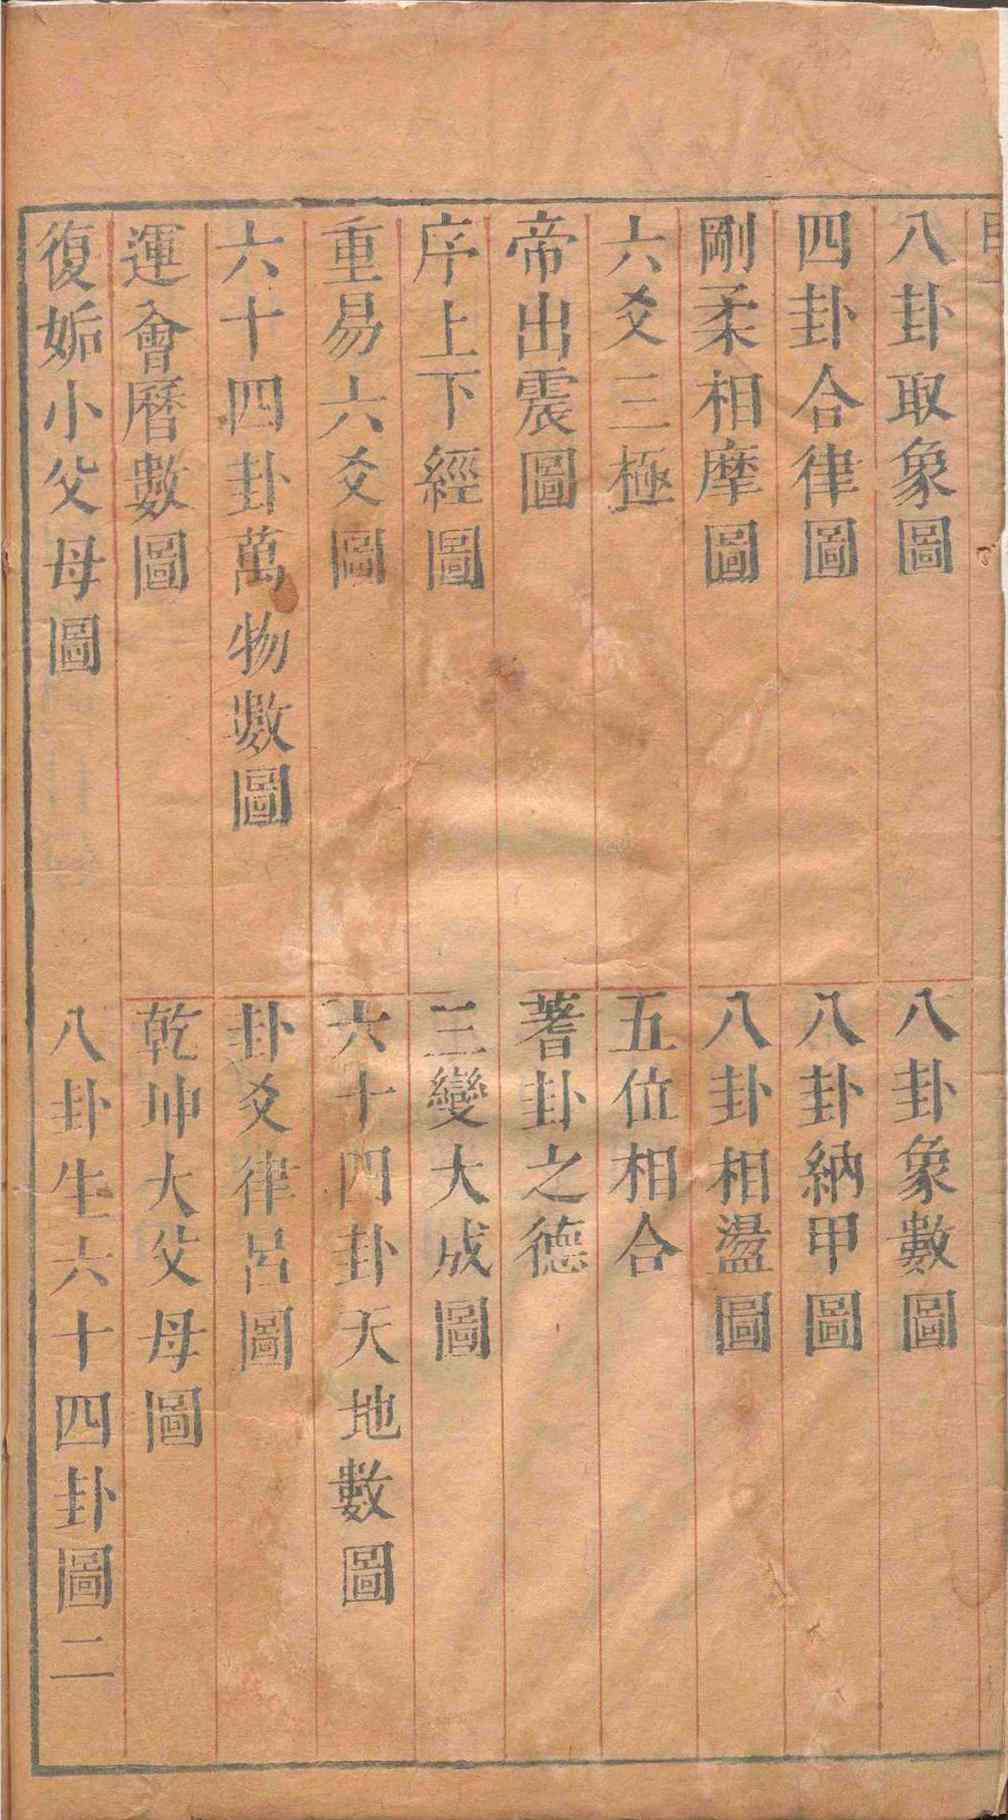 八卦取象圖　八卦象數圖
四卦合律圖　八卦納甲圖
剛柔相摩圖　八卦相盪圖
六爻三極　五位相合
帝出震圖　蓍卦之德
序上下經圖　三變大成圖
重易六爻圖　六十四卦天地數圖
六十四卦萬物數圖　卦爻律呂圖
運會曆數圖　乾坤大父母圖
復姤小父母圖　八卦生六十四卦圖二